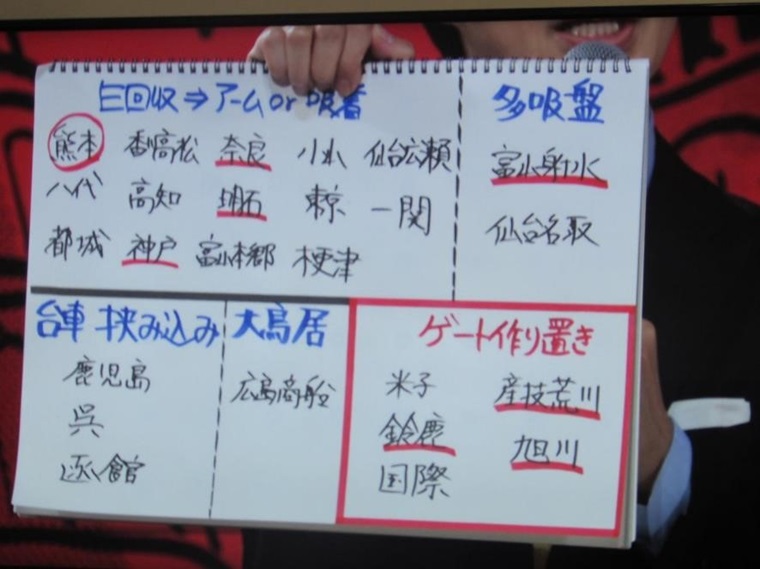 E回収⇒アームor吸着
熊本 香高松 奈良 小山 仙台広瀬
八代 高知 明石 東京 一関
都城 神戸 富山本郷 沼津
多吸盤
富山射水
仙台名取
台車 挟み込み
鹿児島
呉
函館
大鳥居
広島商船
ゲート作り置き
米子 産技荒川
鈴鹿 旭川
国際